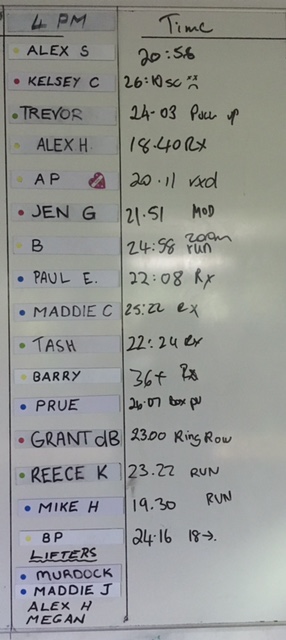 4 PM Time
ALEX S 20:58
KELSEY C 26:10 sc
TREVOR 24-03 Pull up
ALEX H. 18.40 Rx
AP 20.11 rxd
JEN G 21.51 MOD
B 24:58 200m run
PAUL E. 22:08 Rx
MADDIE C 25:22 Rx
TASH 22:24 Rx
BARRY 36+ Rx
PRUE 26.07 box pu
GRANT dB 23.00 Ring Row
REECE K 23.22 RUN
MIKE H 19.30 RUN
BP 24.16 18→.
LIFTERS
MURDOCK
MADDIE J
ALEX H
MEGAN